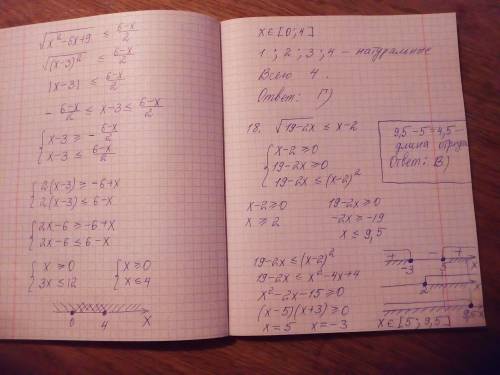 √(x²-6x+9) ≤ (6-x)/2
√((x-3)²) ≤ (6-x)/2
|x-3| ≤ (6-x)/2
-(6-x)/2 ≤ x-3 ≤ (6-x)/2
{ x-3 ≥ -(6-x)/2
x-3 ≤ (6-x)/2
{ 2(x-3) ≥ -6+x
2(x-3) ≤ 6-x
{ 2x-6 ≥ -6+x
2x-6 ≤ 6-x
{ x ≥ 0 { x ≥ 0
3x ≤ 12 x ≤ 4
0 4 x
x ∈ [0; 4]
1; 2; 3; 4 - натуральные
Всего 4.
Ответ: Г)
18. √(19-2x) ≤ x-2
{ x-2 ≥ 0
19-2x ≥ 0
19-2x ≤ (x-2)²
9,5-5=4,5-
длина
Ответ: В)
x-2 ≥ 0 19-2x ≥ 0
x ≥ 2 -2x ≥ -19
x ≤ 9,5
19-2x ≤ (x-2)²
19-2x ≤ x²-4x+4
x²-2x-15 ≥ 0
(x-5)(x+3) ≥ 0
x=5 x=-3
+ - +
-3 5 x
2
9,5 x
x ∈ [5; 9,5]